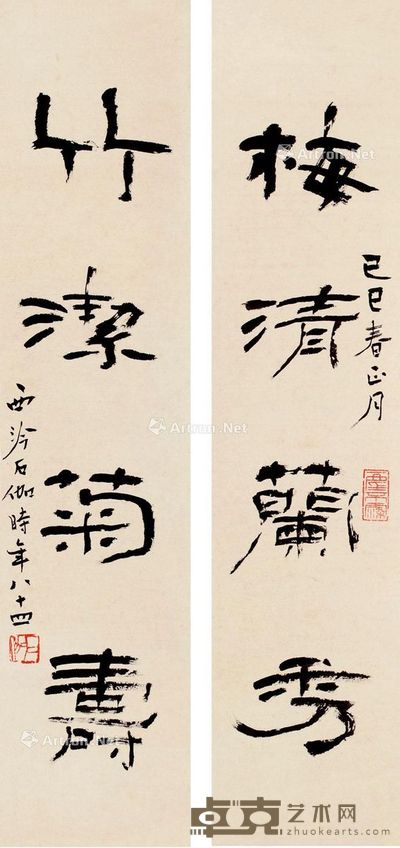 梅清蘭秀
己巳春正月
竹潔菊壽
西泠石伽時年八十四
Artron.Net
Artron.Net
Artron.Net
Artron.Net
卓克艺术网
zhuokearts.com